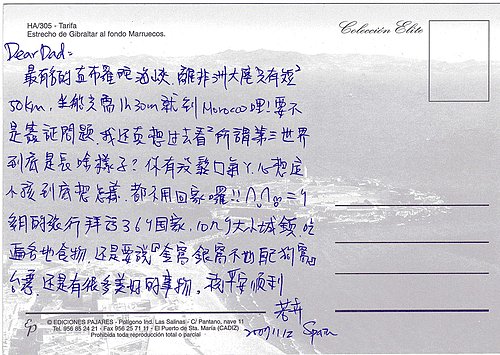 HA/305 - Tarifa
Estrecho de Gibraltar al fondo Marruecos.
Colección Elite
Dear Dad:
最窄的直布羅陀海峽,離非洲大陸只有短短
50km,坐船只需1h30m就到Morocco哩!要不
是簽證問題,我还真想过去看看所謂第三世界
到底是長啥樣子?你有没鬆口氣丫,心想这
小孩到底想怎樣,都不用回家囉!!
組的旅行拜訪3 4国家,10几个大小城鎮,吃
遍各地食物,还是要說『金窩銀窩不如自己的狗窩』
台灣,还是有很多美好的事物,我平安順利
2007/11/12 Spain
© EDICIONES PAJARES - Polígono Ind. Las Salinas - C/ Pantano, nave 11
Tel. 956 85 24 21 - Fax 956 25 71 11 - El Puerto de Sta. María (CADIZ)
Prohibida toda reproducción total o parcial